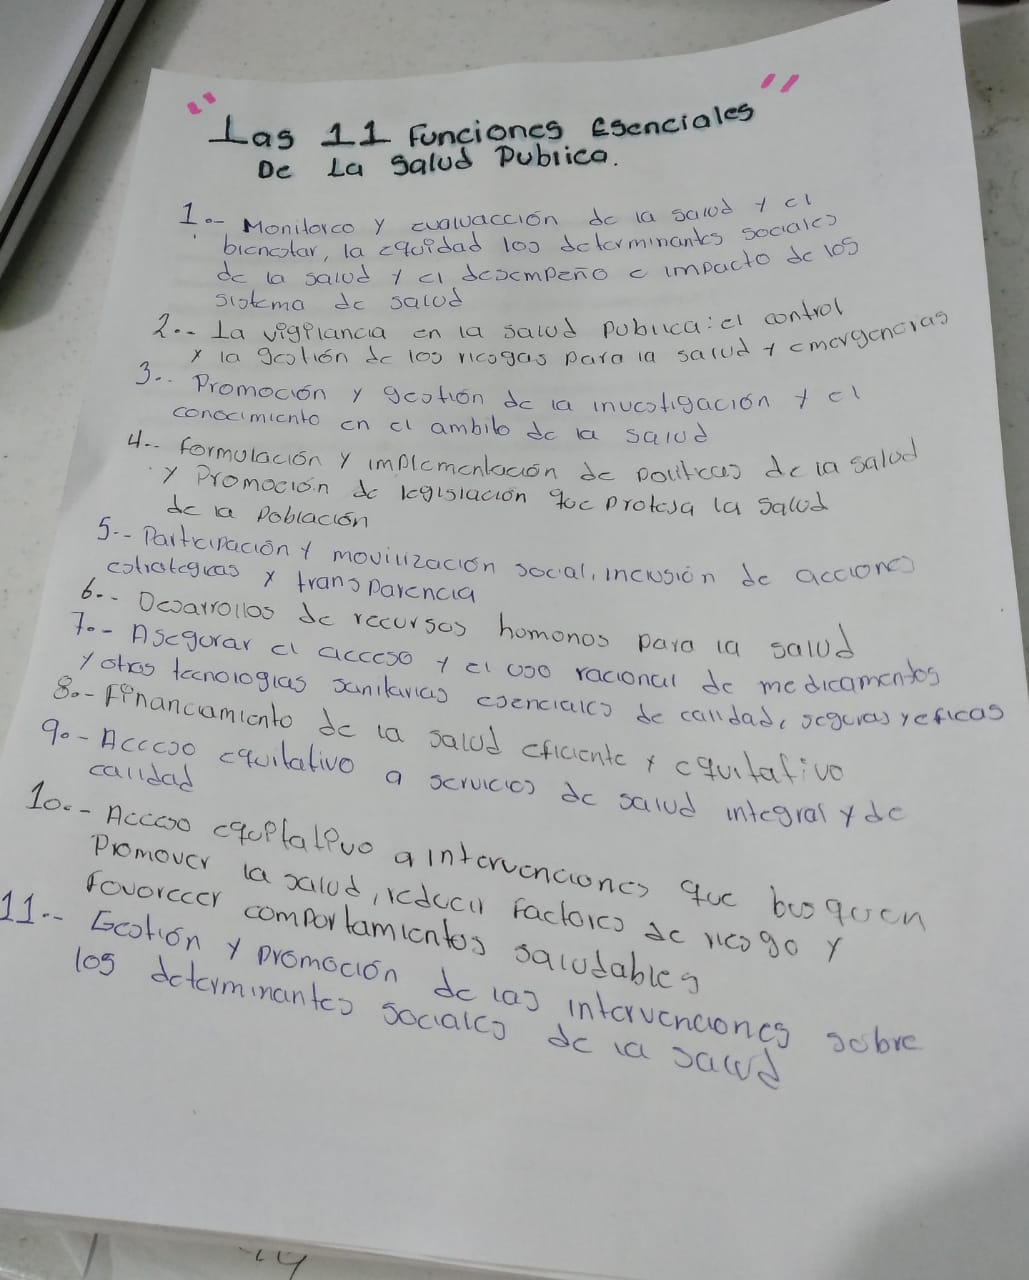 "Las 11 Funciones Esenciales"
De La Salud Publica.
1.- Monitoreo y evaluacción de la salud y el
bienestar, la equidad los determinantes sociales
de la salud y el desempeño e impacto de los
sistema de salud
2.- La vigilancia en la salud publica: el control
y la gestión de los riesgos para la salud y emergencias
3.- Promoción y gestión de la investigación y el
conocimiento en el ambito de la salud
4.- formulación y implementación de politicas de la salud
y Promoción de legislación que proteja la salud
de la Población
5.- Participación y movilización social, inclusión de acciones
estrategicas y transparencia
6.- Desarrollos de recursos homonos para la salud
7.- Asegurar el acceso y el uso racional de medicamentos
y otras tecnologias sanitarias esenciales de calidad, seguras y eficas
8.- Financiamiento de la salud eficiente y equitativo
9.- Acceso equitativo a servicios de salud integral y de
calidad
10.- Acceso equitativo a intervenciones que busquen
Promover la salud, reducir factores de riesgo y
favorecer comportamientos saludables
11.- Gestión y promoción de las intervenciones sobre
los determinantes sociales de la salud